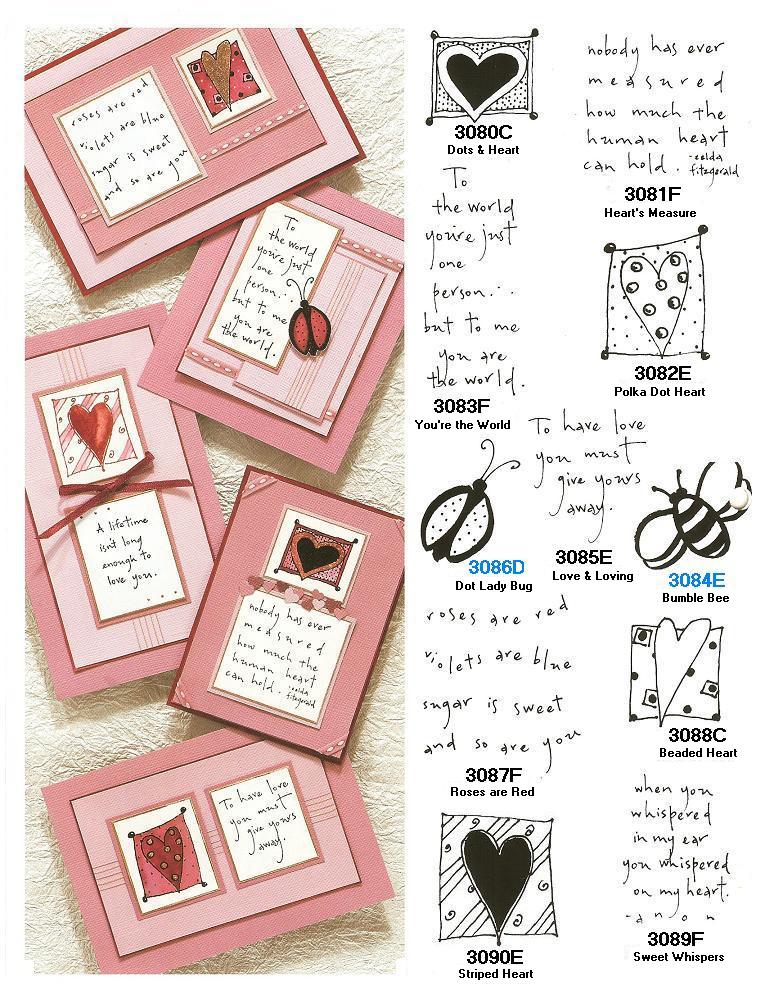 roses are red
violets are blue
sugar is sweet
and so are you
To
the world
you're just
one
person...
but to me
you are
the world.
A lifetime
isn't long
enough to
love you.
nobody has ever
measured
how much the
human heart
can hold. -zelda
fitzgerald
To have love
you must
give yours
away.
3080C
Dots & Heart
nobody has ever
measured
how much the
human heart
can hold. -zelda
fitzgerald
3081F
Heart's Measure
To
the world
you're just
one
person...
but to me
you are
the world.
3083F
You're the World
3082E
Polka Dot Heart
To have love
you must
give yours
away.
3086D
Dot Lady Bug
3085E
Love & Loving
3084E
Bumble Bee
roses are red
violets are blue
sugar is sweet
and so are you
3087F
Roses are Red
3088C
Beaded Heart
when you
whispered
in my ear
you whispered
on my heart.
-anon
3089F
Sweet Whispers
3090E
Striped Heart